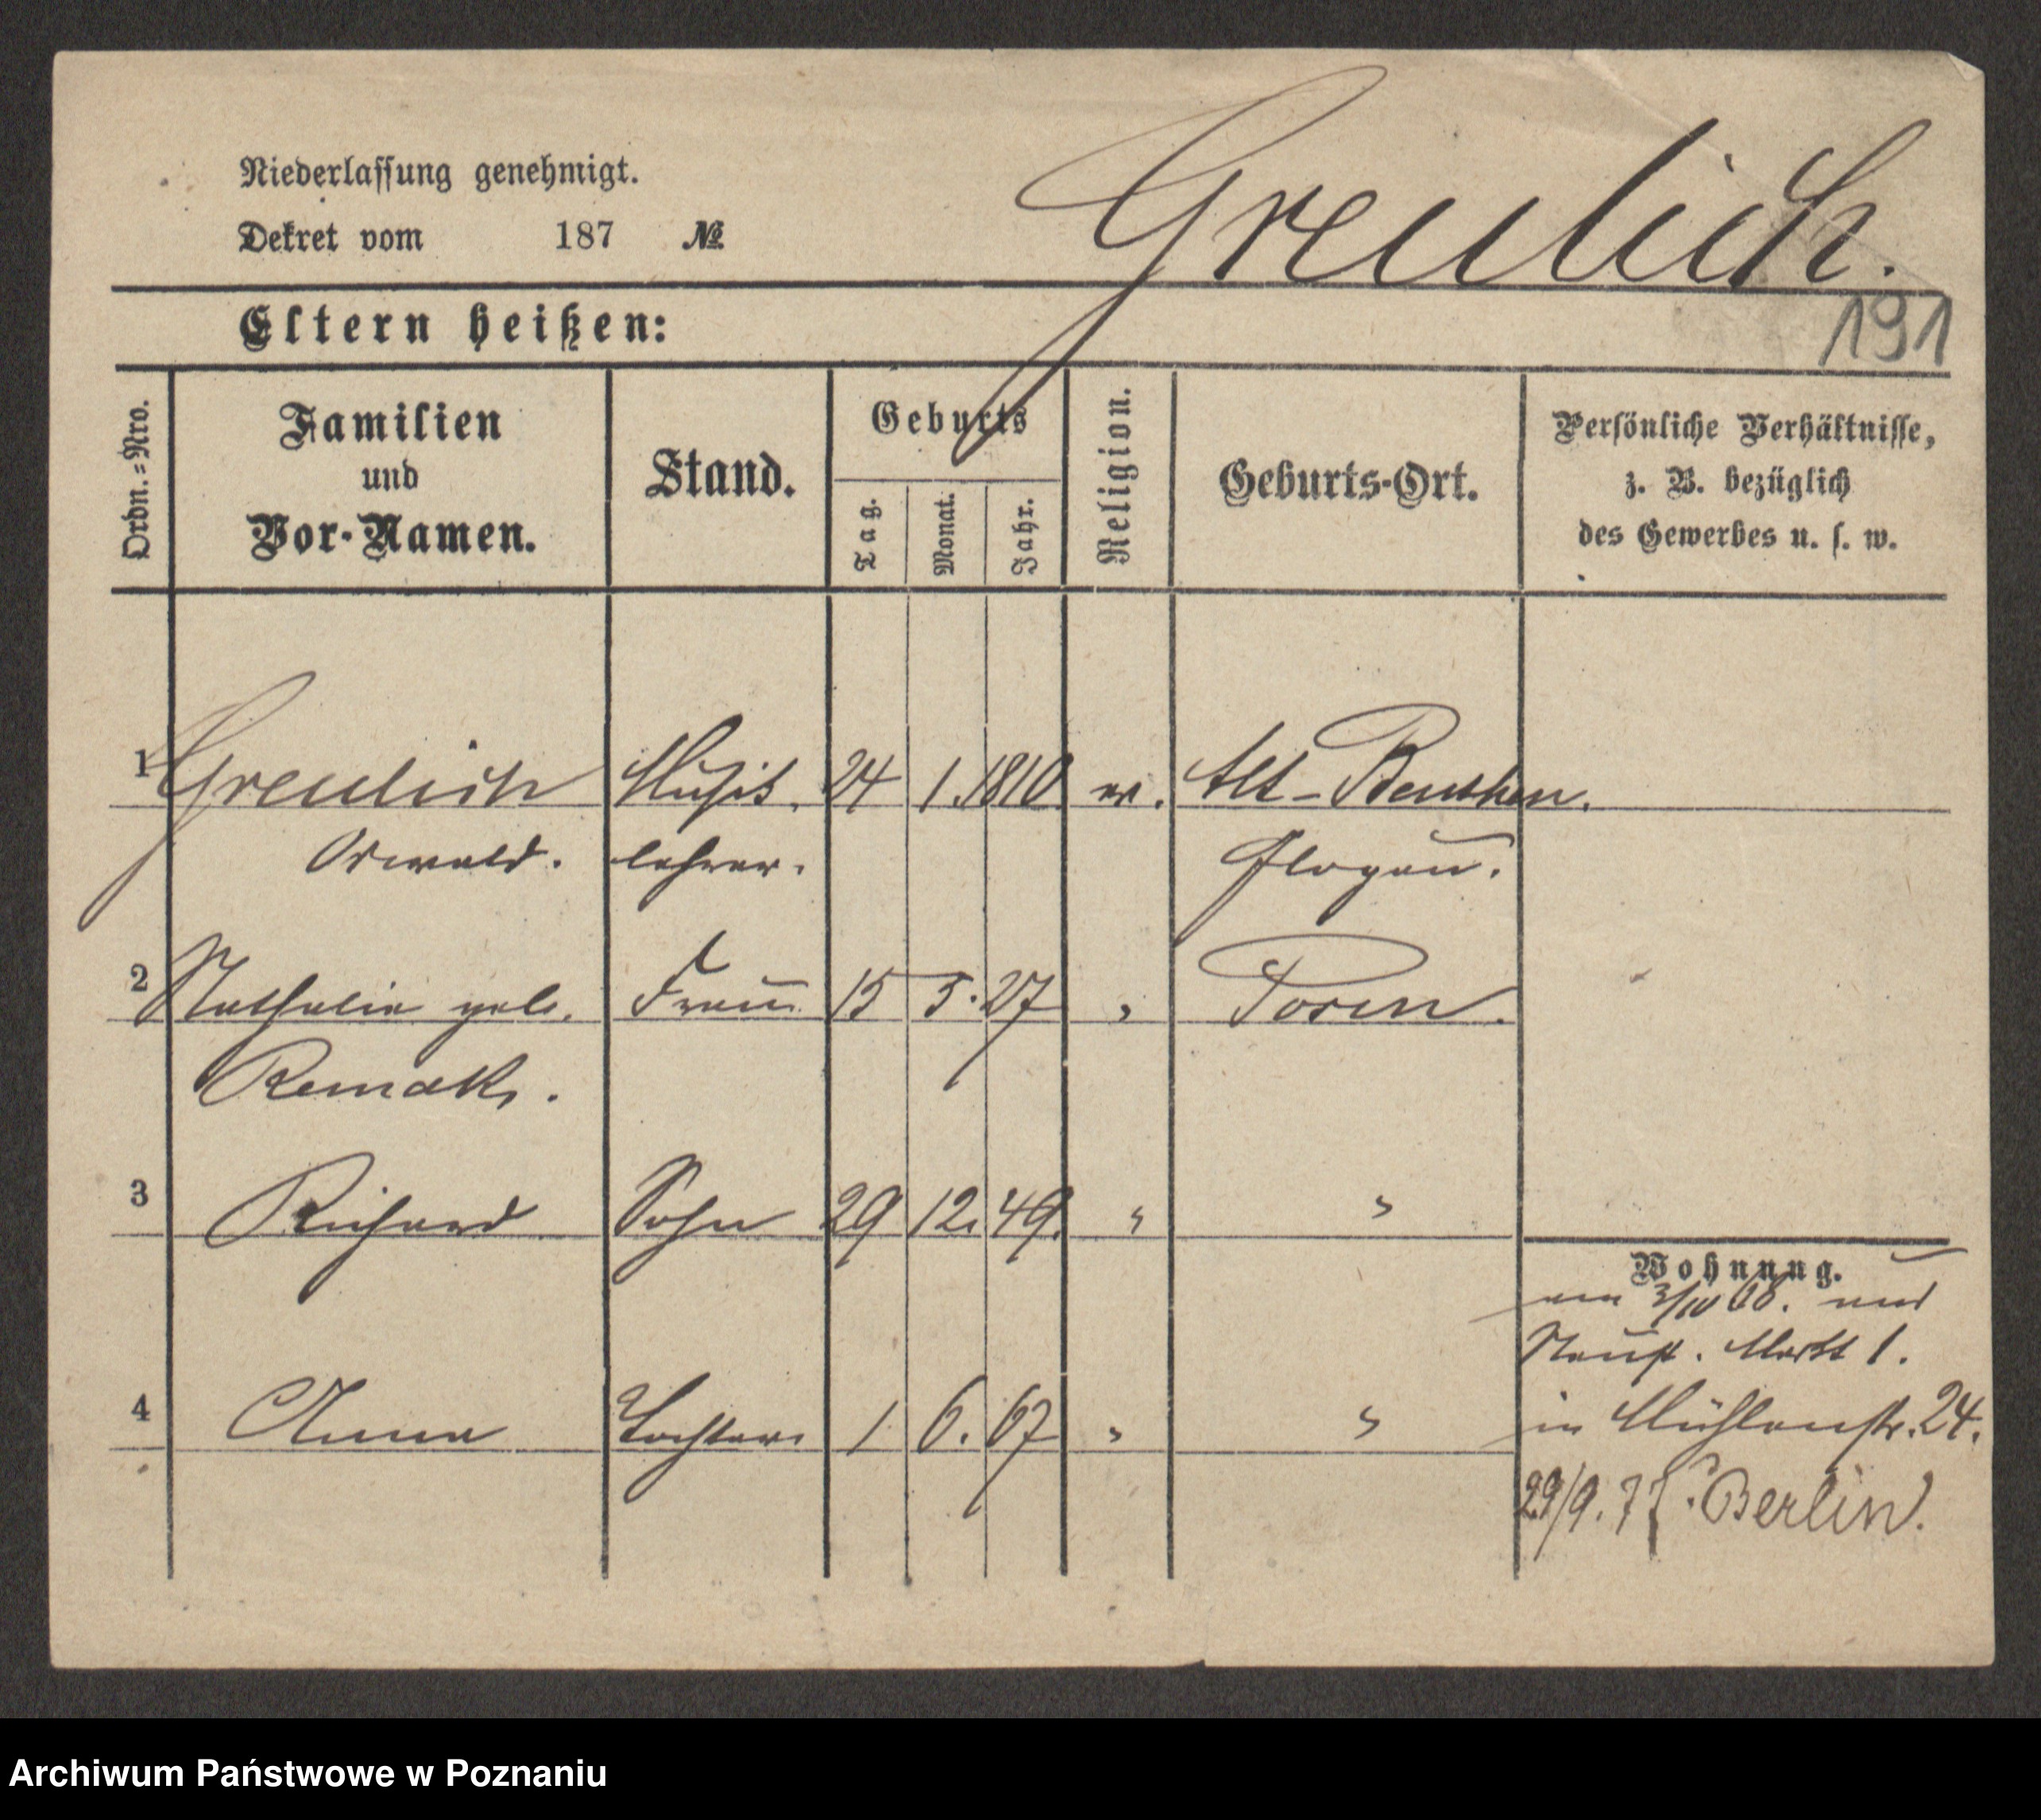 Niederlassung genehmigt.
Dekret vom 187 №
Greulich.
191
Eltern heißen:
Ordn.=Nro.
Familien
und
Vor-Namen.
Stand.
Geburts
Tag.
Monat.
Jahr.
Religion.
Geburts-Ort.
Persönliche Verhältnisse,
z. B. bezüglich
des Gewerbes u. s. w.
1 Greulich Musik 24 1. 1810 ev. Alt-Beuthen.
Oswald. lehrer. Glogau.
2 Nathalie geb. Frau 15 5. 27 " Posen.
Remak.
3 Richard Sohn 29 12. 49. " "
Wohnung.
3/IV 68.
Neust. Markt 1.
4 Anna Tochter 1 6. 67 " "
in Mühlenstr. 24.
29/9. 77. Berlin.
Archiwum Państwowe w Poznaniu